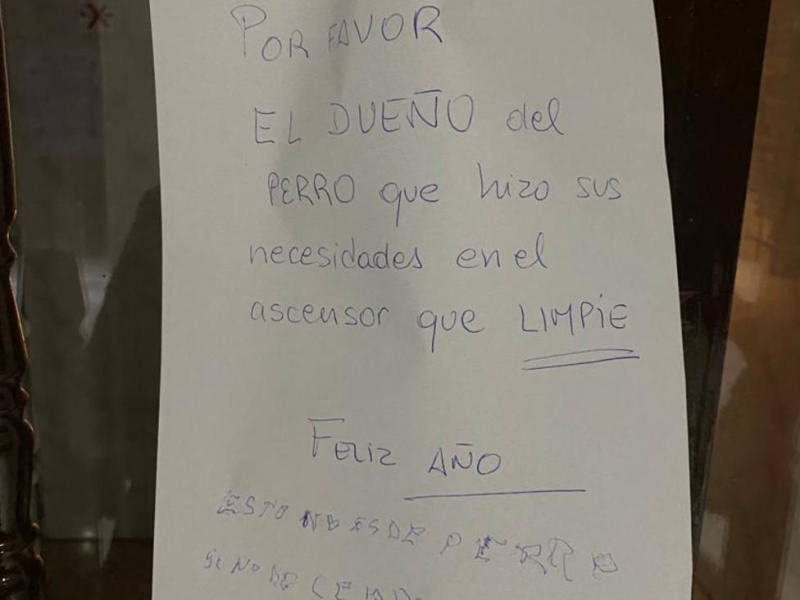 POR FAVOR
EL DUEÑO del
PERRO que hizo sus
necesidades en el
ascensor que LIMPIE
FELIZ AÑO
ESTO NO ES DE PERRO
SI NO DE